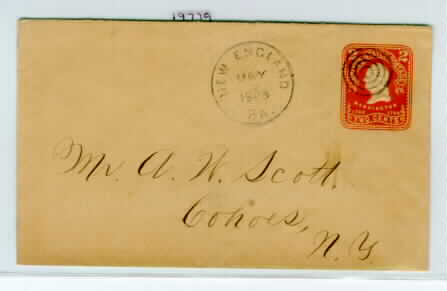 19775
NEW ENGLAND
MAY
PA.
WASHINGTON
TWO CENTS
Mr. A. W. Scott.
Cohoes,
N. Y.